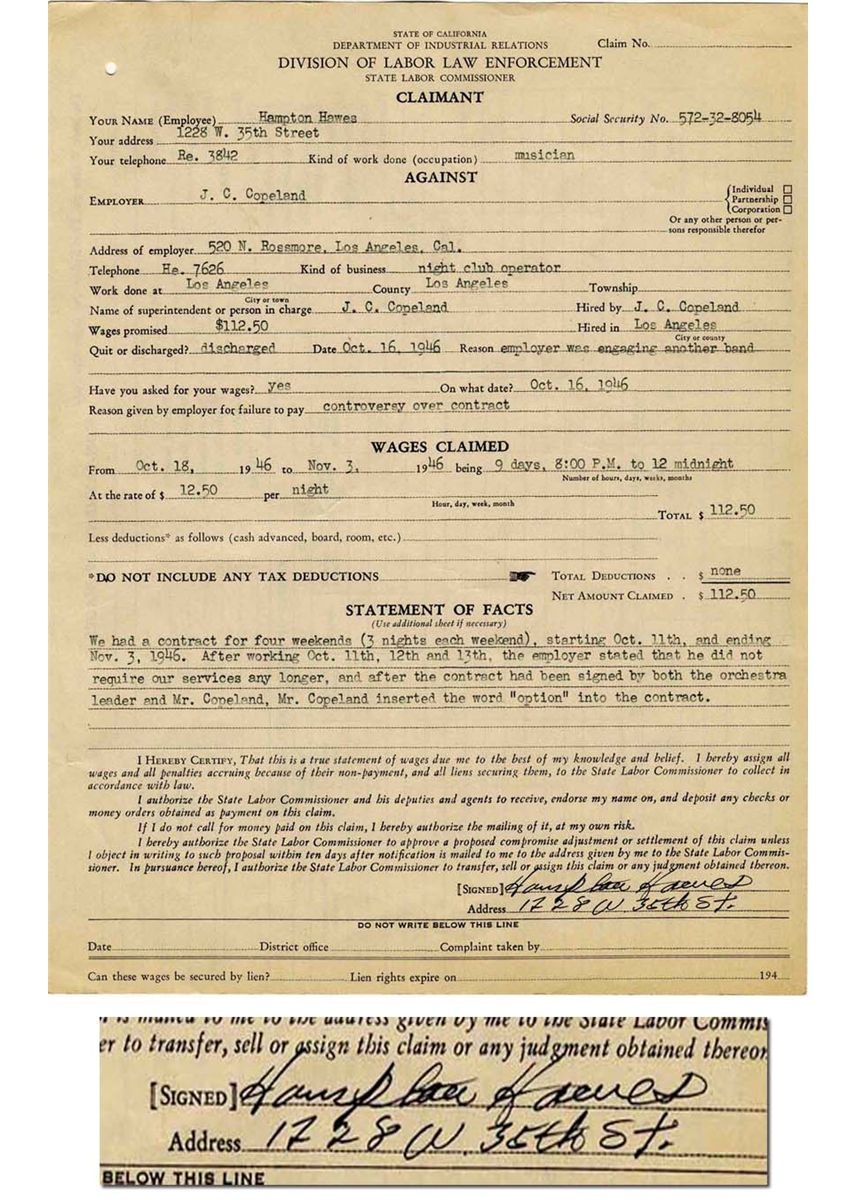 STATE OF CALIFORNIA
DEPARTMENT OF INDUSTRIAL RELATIONS Claim No.
DIVISION OF LABOR LAW ENFORCEMENT
STATE LABOR COMMISSIONER
CLAIMANT
YOUR NAME (Employee) Hampton Hawes Social Security No. 572-32-8054
Your address 1228 W. 35th Street
Your telephone Re. 3842 Kind of work done (occupation) musician
AGAINST
EMPLOYER J. C. Copeland
Individual
Partnership
Corporation
Or any other person or per-
sons responsible therefor
Address of employer 520 N. Rossmore, Los Angeles, Cal.
Telephone He. 7626 Kind of business night club operator
Work done at Los Angeles County Los Angeles Township
City or town
Name of superintendent or person in charge J. C. Copeland Hired by J. C. Copeland
Wages promised $112.50 Hired in Los Angeles
City or county
Quit or discharged? discharged Date Oct. 16, 1946 Reason employer was engaging another band
Have you asked for your wages? yes On what date? Oct. 16, 1946
Reason given by employer for failure to pay controversy over contract
WAGES CLAIMED
From Oct. 18, 1946 to Nov. 3, 1946 being 9 days, 8:00 P.M. to 12 midnight
Number of hours, days, weeks, months
At the rate of $ 12.50 per night
Hour, day, week, month
TOTAL $ 112.50
Less deductions* as follows (cash advanced, board, room, etc.)
*DO NOT INCLUDE ANY TAX DEDUCTIONS TOTAL DEDUCTIONS . . $ none
NET AMOUNT CLAIMED . $ 112.50
STATEMENT OF FACTS
(Use additional sheet if necessary)
We had a contract for four weekends (3 nights each weekend), starting Oct. 11th, and ending
Nov. 3, 1946. After working Oct. 11th, 12th and 13th, the employer stated that he did not
require our services any longer, and after the contract had been signed by both the orchestra
leader and Mr. Copeland, Mr. Copeland inserted the word "option" into the contract.
I HEREBY CERTIFY, That this is a true statement of wages due me to the best of my knowledge and belief. I hereby assign all
wages and all penalties accruing because of their non-payment, and all liens securing them, to the State Labor Commissioner to collect in
accordance with law.
I authorize the State Labor Commissioner and his deputies and agents to receive, endorse my name on, and deposit any checks or
money orders obtained as payment on this claim.
If I do not call for money paid on this claim, I hereby authorize the mailing of it, at my own risk.
I hereby authorize the State Labor Commissioner to approve a proposed compromise adjustment or settlement of this claim unless
I object in writing to such proposal within ten days after notification is mailed to me to the address given by me to the State Labor Commis-
sioner. In pursuance hereof, I authorize the State Labor Commissioner to transfer, sell or assign this claim or any judgment obtained thereon.
[SIGNED] Hampton Hawes
Address 1228 W. 35th St.
DO NOT WRITE BELOW THIS LINE
Date District office Complaint taken by
Can these wages be secured by lien? Lien rights expire on 194
is mailed to me to the address given by me to the State Labor Commis
er to transfer, sell or assign this claim or any judgment obtained thereon
[SIGNED] Hampton Hawes
Address 1228 W. 35th St.
BELOW THIS LINE